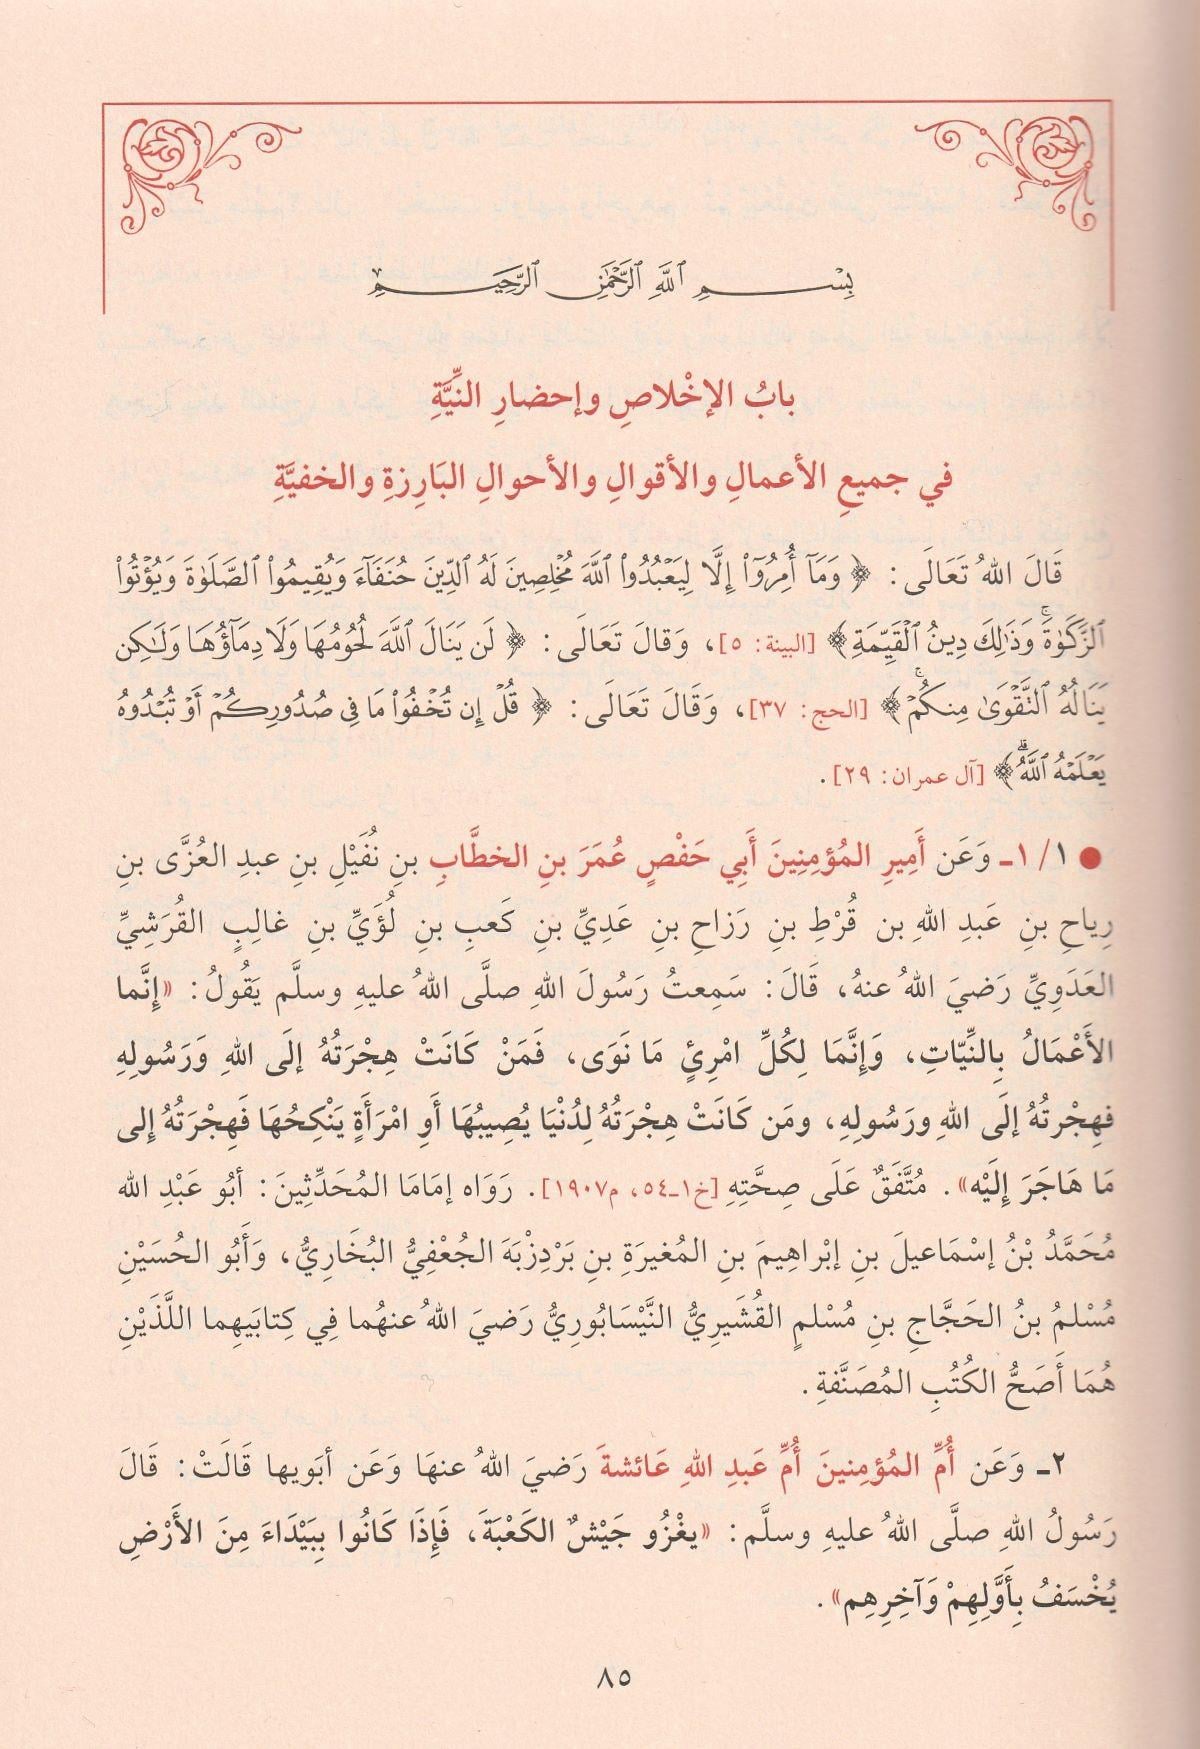 بِسْمِ ٱللَّهِ ٱلرَّحْمَٰنِ ٱلرَّحِيمِ
بابُ الإخْلاصِ وإحضارِ النِّيَّةِ
في جميعِ الأعمالِ والأقوالِ والأحوالِ البَارِزةِ والخفيَّةِ
قَالَ اللهُ تَعَالَى: ﴿ وَمَآ أُمِرُوٓاْ إِلَّا لِيَعۡبُدُواْ ٱللَّهَ مُخۡلِصِينَ لَهُ ٱلدِّينَ حُنَفَآءَ وَيُقِيمُواْ ٱلصَّلَوٰةَ وَيُؤۡتُواْ
ٱلزَّكَوٰةَۚ وَذَٰلِكَ دِينُ ٱلۡقَيِّمَةِ﴾ [البينة: ٥]، وَقالَ تَعَالَى: ﴿ لَن يَنَالَ ٱللَّهَ لُحُومُهَا وَلَا دِمَآؤُهَا وَلَٰكِن
يَنَالُهُ ٱلتَّقۡوَىٰ مِنكُمۡۚ﴾ [الحج: ٣٧]، وَقَالَ تَعَالَى: ﴿ قُلۡ إِن تُخۡفُواْ مَا فِي صُدُورِكُمۡ أَوۡ تُبۡدُوهُ
يَعۡلَمۡهُ ٱللَّهُۗ﴾ [آل عمران: ٢٩].
● ١/ ١ـ وَعَن أَمِيرِ المُؤمِنِينَ أَبِي حَفْصٍ عُمَرَ بنِ الخطَّابِ بنِ نُفَيْلِ بنِ عبدِ العُزَّى بنِ
رِياحِ بنِ عَبدِ اللهِ بن قُرْطِ بنِ رَزاحِ بنِ عَدِيِّ بنِ كَعبِ بنِ لُؤَيِّ بنِ غالِبٍ القُرَشِيِّ
العَدَوِيِّ رَضيَ اللهُ عنهُ، قَالَ: سَمِعتُ رَسُولَ اللهِ صلَّى اللهُ عليهِ وسلَّم يَقُولُ: «إنَّما
الأَعْمَالُ بِالنِّيّاتِ، وَإِنَّمَا لِكُلِّ امْرِئٍ مَا نَوَى، فَمَنْ كَانَتْ هِجْرَتُهُ إلَى اللهِ وَرَسُولِهِ
فهِجْرتُهُ إلَى اللهِ ورَسُولِهِ، ومَن كَانَتْ هِجْرَتُهُ لِدُنْيَا يُصِيبُهَا أَوِ امْرَأَةٍ يَنْكِحُهَا فَهِجْرَتُهُ إِلى
مَا هَاجَرَ إِلَيْه». مُتَّفَقٌ عَلَى صِحَّتِهِ [خ١ـ٥٤، م١٩٠٧]. رَوَاه إمَامَا المُحَدِّثِينَ: أبُو عَبْدِ الله
مُحَمَّدُ بْنُ إسْمَاعيلَ بنِ إبْراهِيمَ بنِ المُغيرَةِ بنِ بَرْدِزْبَهَ الجُعْفِيُّ البُخَارِيُّ، وَأَبُو الحُسَيْنِ
مُسْلمُ بنُ الحَجَّاجِ بنِ مُسْلمٍ القُشَيرِيُّ النَّيْسَابُورِيُّ رَضيَ اللهُ عنهُما فِي كِتابَيهِما اللَّذَيْنِ
هُمَا أَصَحُّ الكُتُبِ المُصَنَّفةِ.
٢ـ وَعَن أُمِّ المُؤمِنينَ أُمِّ عَبدِ اللهِ عَائشةَ رَضيَ اللهُ عنهَا وَعَن أبَويها قَالَتْ: قَالَ
رَسُولُ اللهِ صلَّى اللهُ عليهِ وسلَّم: «يغْزُو جَيْشٌ الكَعْبَةَ، فَإِذَا كَانُوا بِبَيْدَاءَ مِنَ الأَرْضِ
يُخْسَفُ بِأَوَّلِهِمْ وَآخِرِهِم».
٨٥